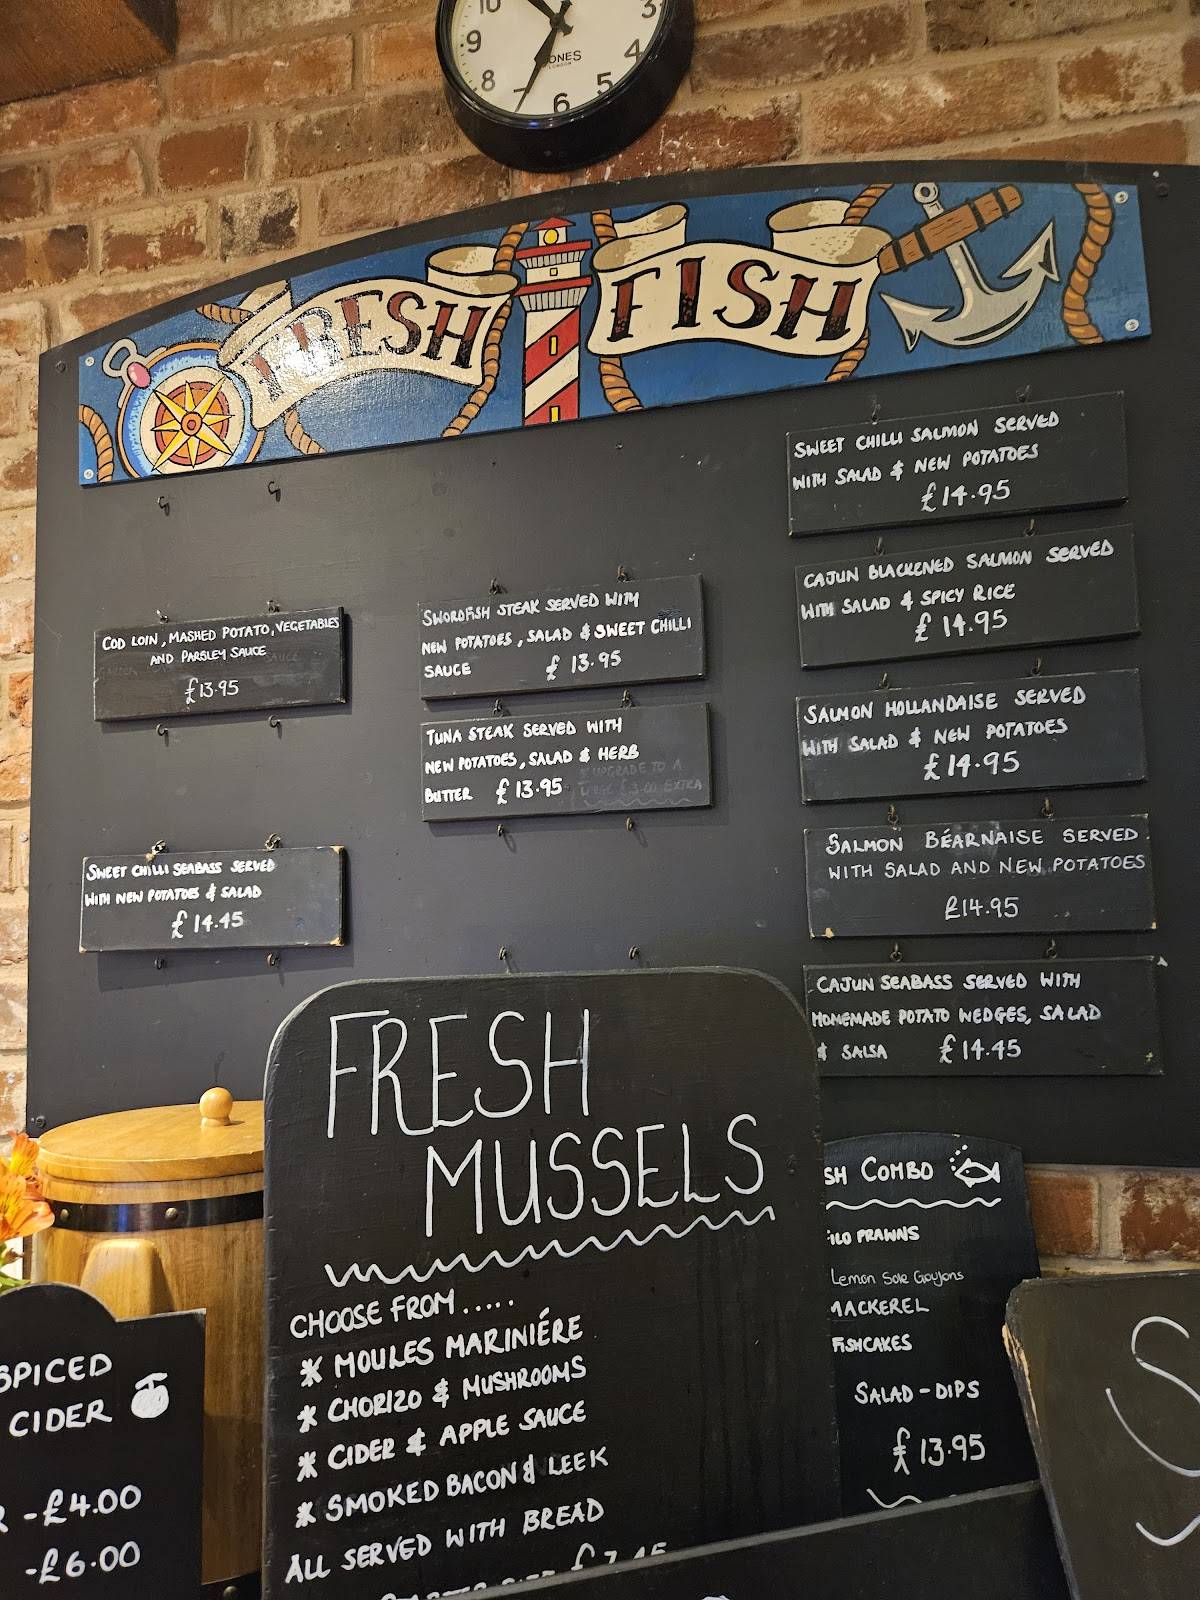 10
9
8
7
6
5
4
3
JONES
LONDON
FRESH FISH
COD LOIN, MASHED POTATO, VEGETABLES
AND PARSLEY SAUCE
£13.95
SWEET CHILLI SEABASS SERVED
WITH NEW POTATOES & SALAD
£14.45
SWORDFISH STEAK SERVED WITH
NEW POTATOES, SALAD & SWEET CHILLI
SAUCE £13.95
TUNA STEAK SERVED WITH
NEW POTATOES, SALAD & HERB
BUTTER £13.95
UPGRADE TO A
LARGE £3.00 EXTRA
SWEET CHILLI SALMON SERVED
WITH SALAD & NEW POTATOES
£14.95
CAJUN BLACKENED SALMON SERVED
WITH SALAD & SPICY RICE
£14.95
SALMON HOLLANDAISE SERVED
WITH SALAD & NEW POTATOES
£14.95
SALMON BÉARNAISE SERVED
WITH SALAD AND NEW POTATOES
£14.95
CAJUN SEABASS SERVED WITH
HOMEMADE POTATO WEDGES, SALAD
& SALSA £14.45
FRESH
MUSSELS
CHOOSE FROM.....
* MOULES MARINIÉRE
* CHORIZO & MUSHROOMS
* CIDER & APPLE SAUCE
* SMOKED BACON & LEEK
ALL SERVED WITH BREAD
SH COMBO
ILO PRAWNS
Lemon Sole Goujons
MACKEREL
FISHCAKES
SALAD - DIPS
£13.95
SPICED
CIDER
R - £4.00
- £6.00
S